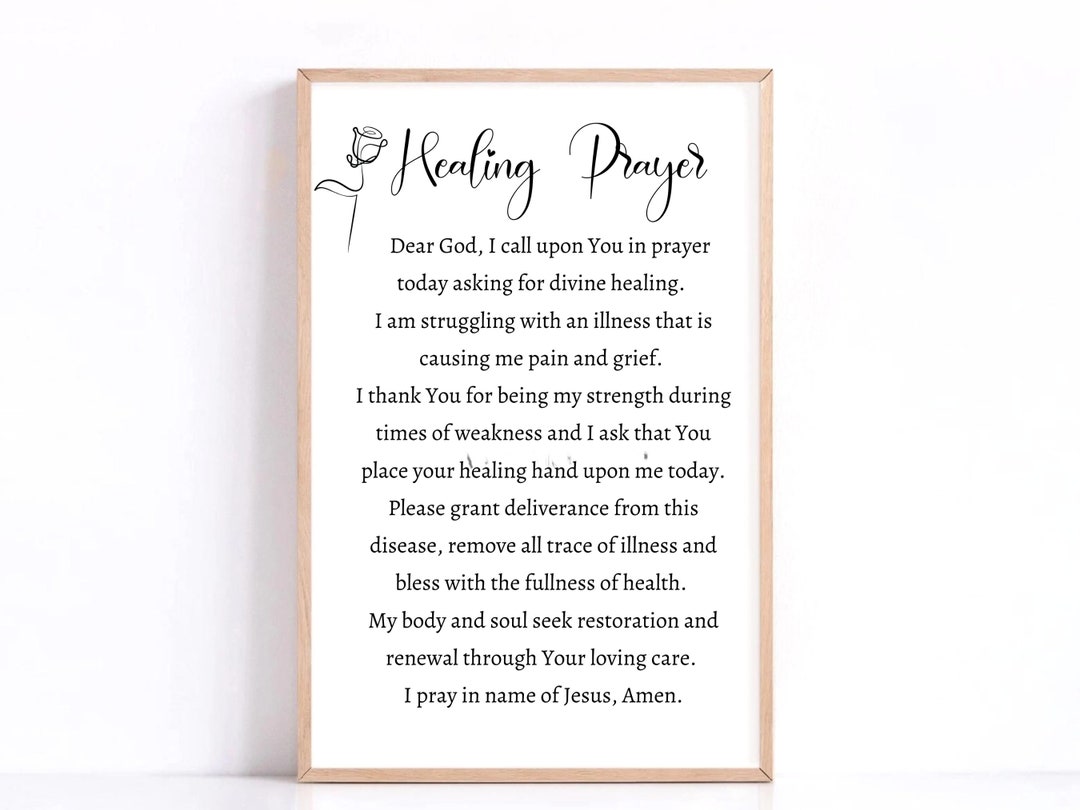 Healing Prayer
Dear God, I call upon You in prayer
today asking for divine healing.
I am struggling with an illness that is
causing me pain and grief.
I thank You for being my strength during
times of weakness and I ask that You
place your healing hand upon me today.
Please grant deliverance from this
disease, remove all trace of illness and
bless with the fullness of health.
My body and soul seek restoration and
renewal through Your loving care.
I pray in name of Jesus, Amen.